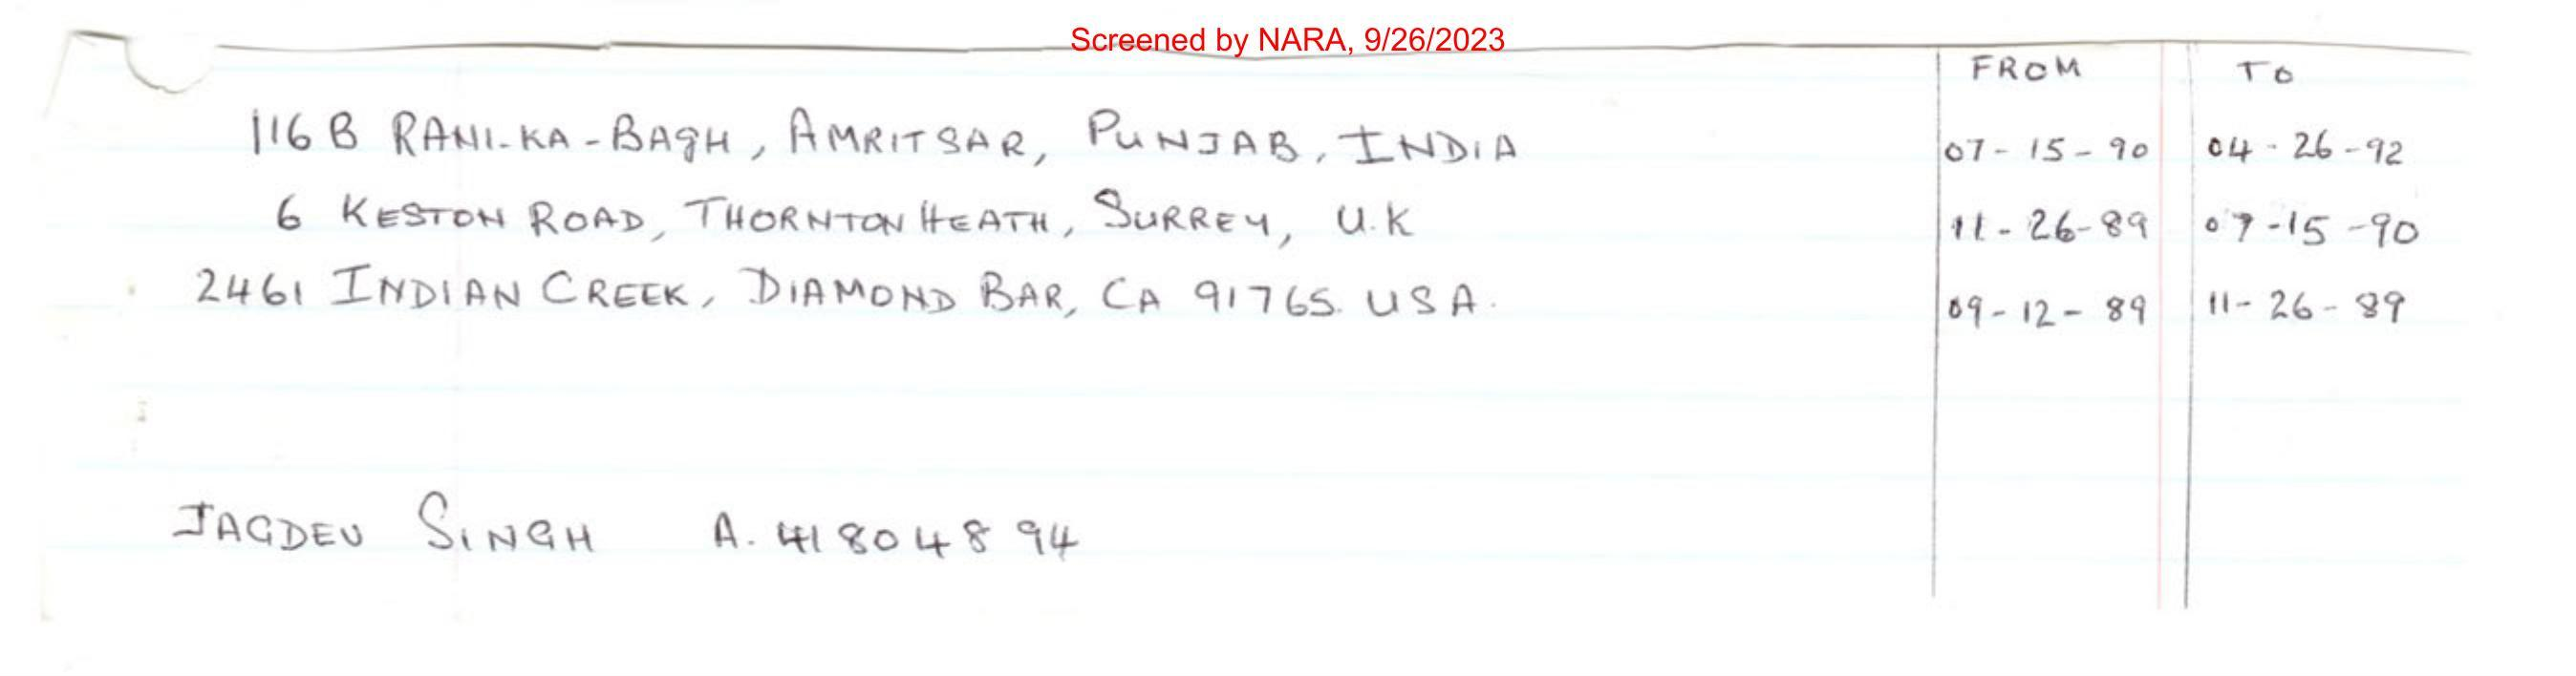 Screened by NARA, 9/26/2023
FROM TO
116 B RANI-KA-BAGH, AMRITSAR, PUNJAB, INDIA 07-15-90 04-26-92
6 KESTON ROAD, THORNTON HEATH, SURREY, U.K 11-26-89 07-15-90
2461 INDIAN CREEK, DIAMOND BAR, CA 91765. USA. 09-12-89 11-26-89
JAGDEV SINGH A. 41804894